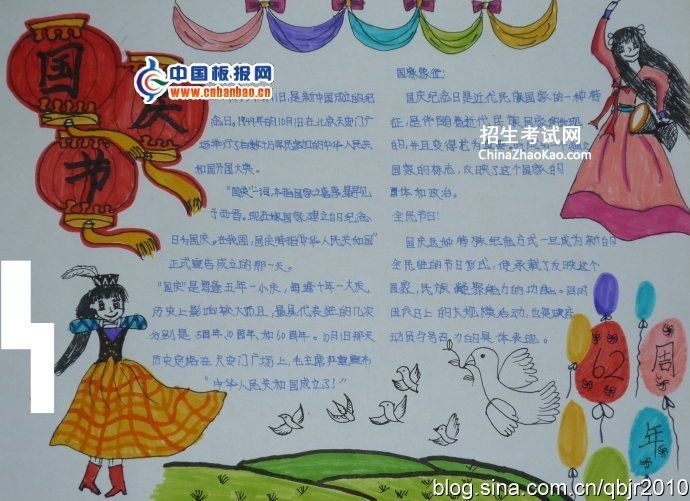 国庆节
中国板报网
www.cnbanbao.cn
日,是新中国成立的纪
念日。1949年的10月1日在北京天安门广
场举行了
的中华人民共
和国开国大典。
"国庆"一词,
于西晋。
国家建立的纪念
日称国庆。在我国,国庆特指"中华人民共和国"
正式宣告成立的那一天。
"国庆"是
五年一小庆,每逢十年一大庆。
历史上影响较大而且,最具代表性的几次
分别是5周年,10周年,和60周年。10月1日那天
历史定格在天安门广场上,毛主席严重宣布
"中华人民共和国成立了!"
国家象征:
国庆纪念日是近代民族国家的一种特
征,是伴随着近代民族国家的出现
的,并且变得
国家的标志,反映了这个国家的
国体和政治。
招生考试网
ChinaZhaoKao.com
全民节日:
国庆这种特殊纪念方式一旦成为新的
全民性的节日形式,便承载了反映这个
国家,民族凝聚能力的功能。
国庆日上的大规模活动,也是政府
动员与号召力的具体表现。
62周年
blog.sina.com.cn/qbjr2010